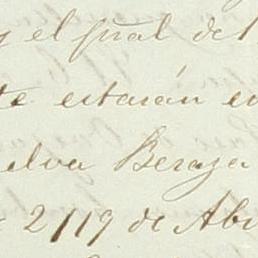 y el final del
te estarán en
elva Beraza
2/119 de Abr